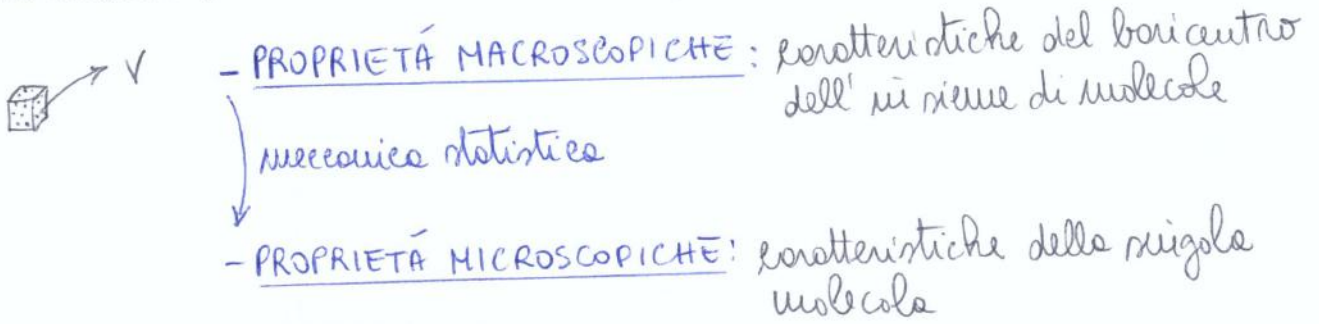 V
- PROPRIETÁ MACROSCOPICHE: caratteristiche del baricentro
dell'insieme di molecole
meccanica statistica
- PROPRIETÁ MICROSCOPICHE: caratteristiche della singola
molecola